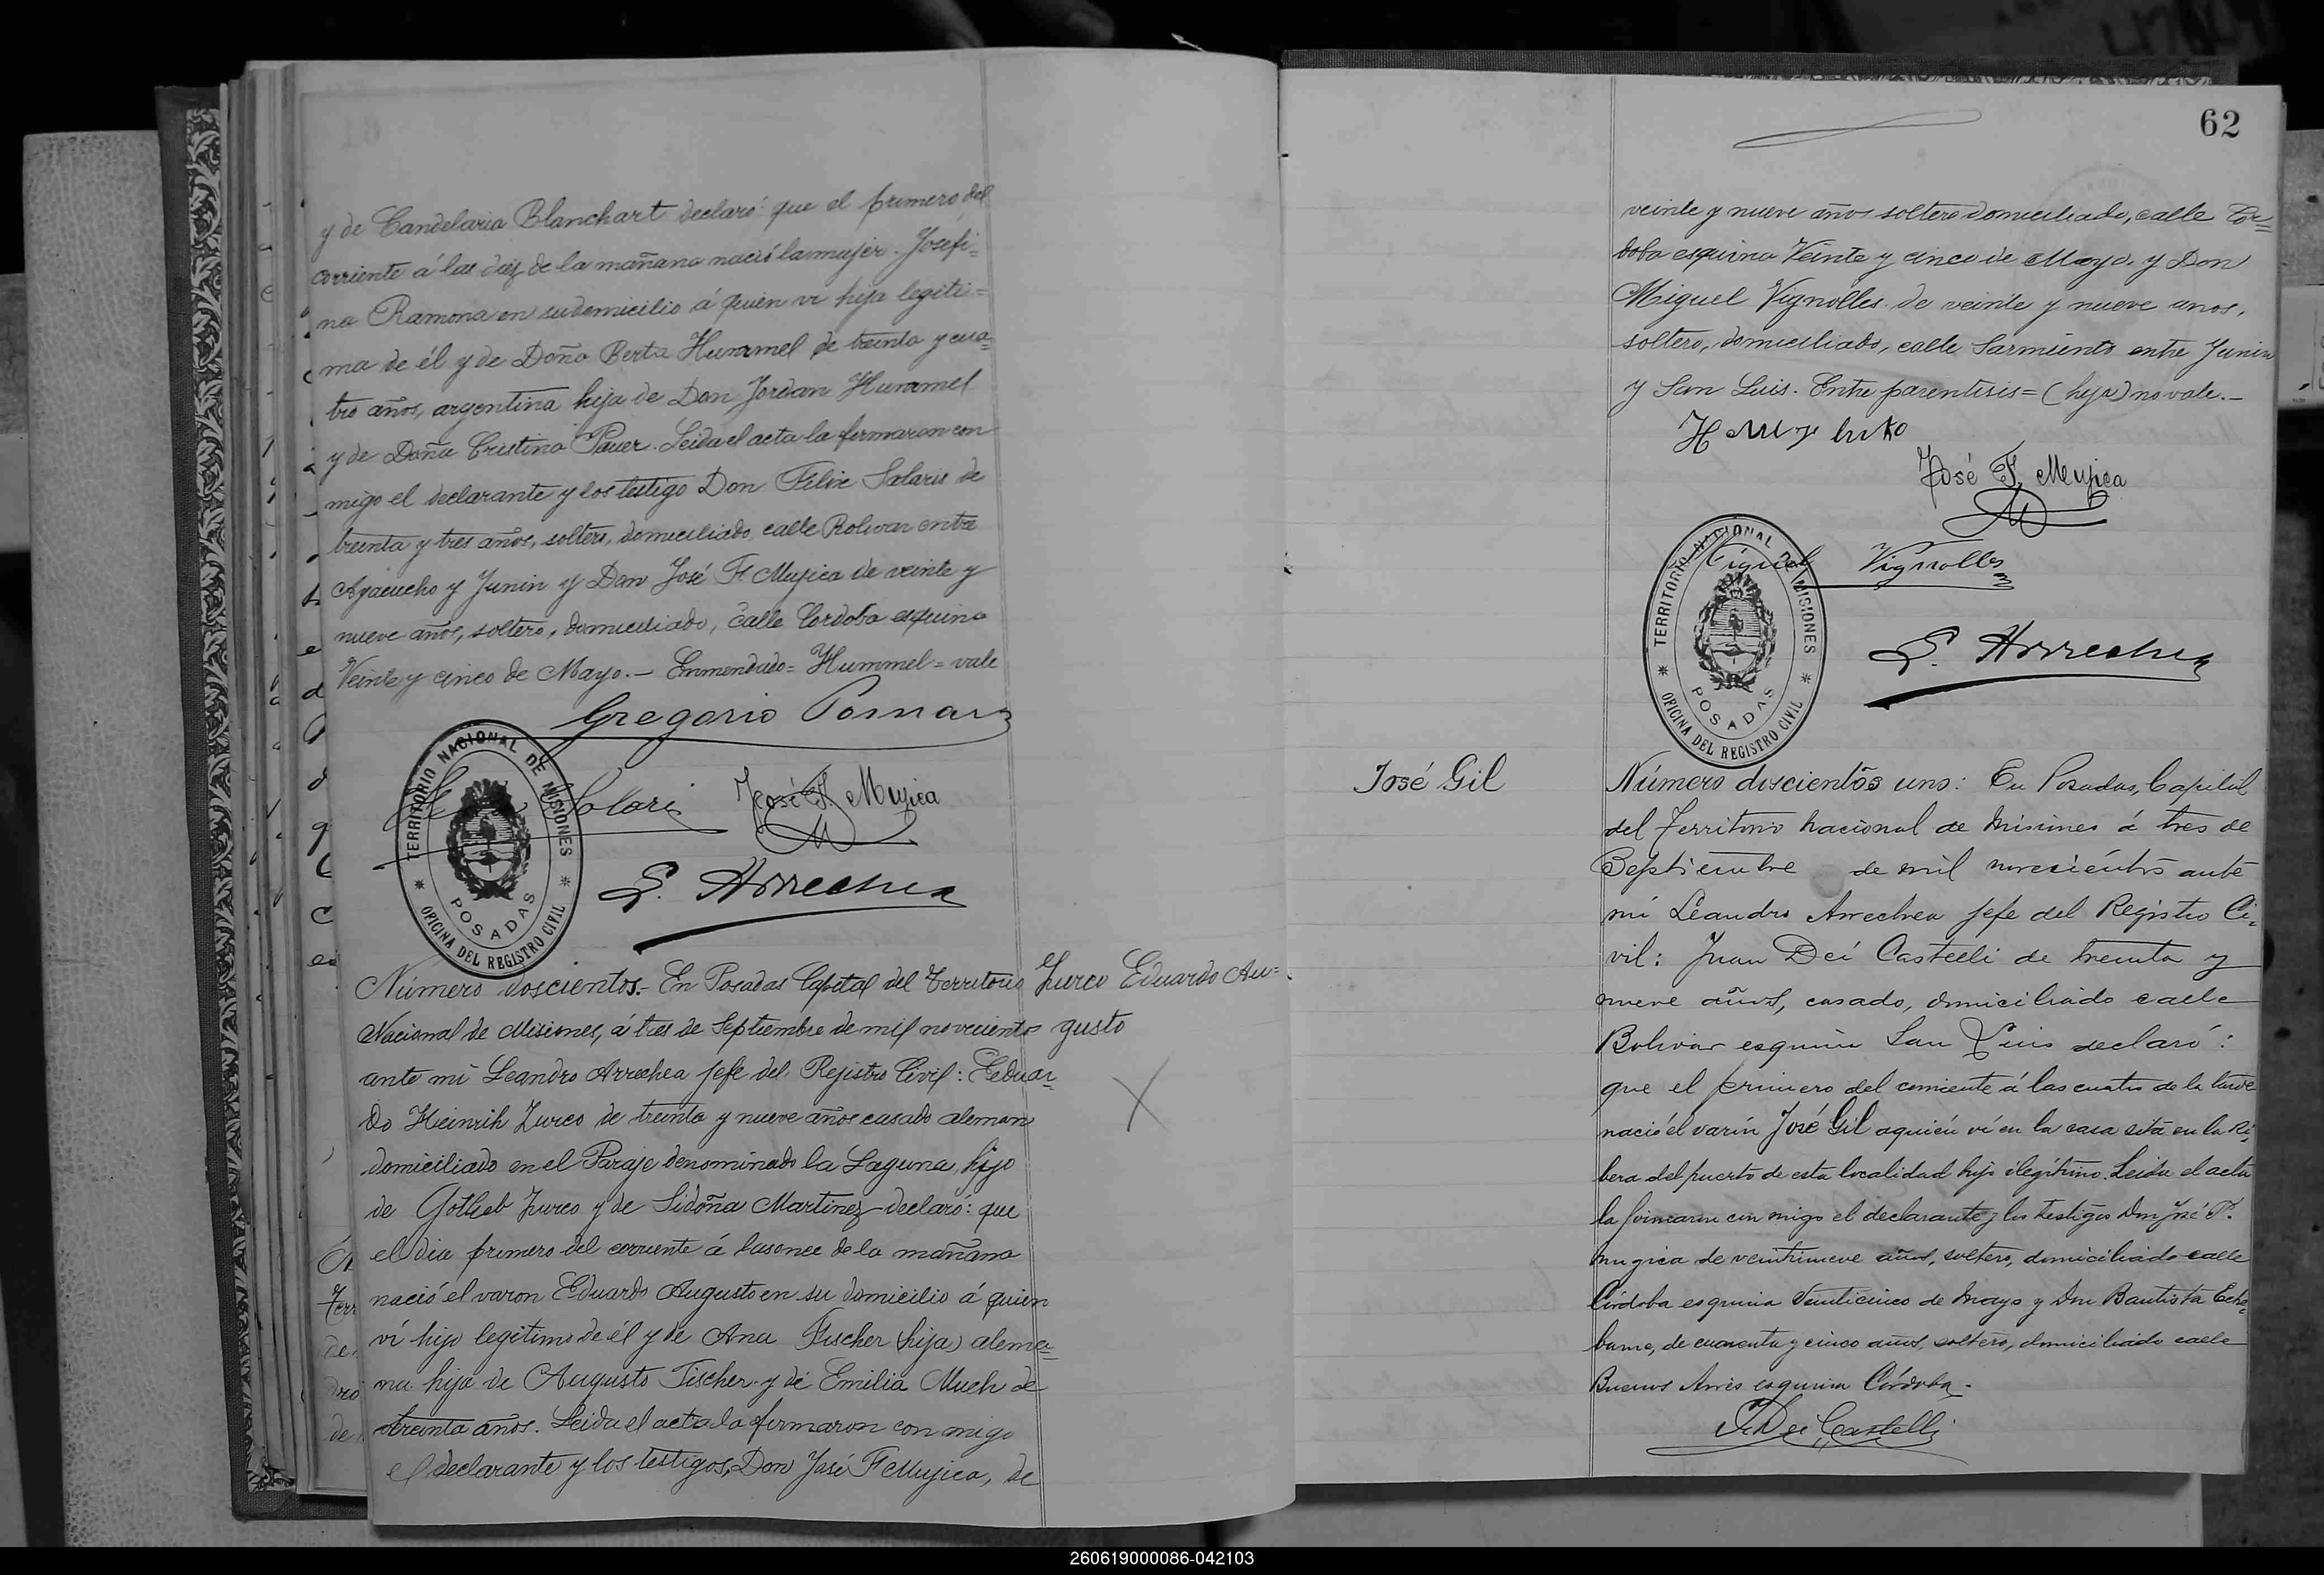 y de Candelaria Blanchart declaró: que el primero del
corriente á las diez de la mañana nació la mujer. Josefi=
na Ramona en su domicilio á quien vi hija legiti=
ma de él y de Doña Berta Hummel de treinta y cua=
tro años, argentina hija de Don Jordan Hummel
y de Doña Cristina Pauer. Leida el acta la firmaron con
migo el declarante y los testigo Don Felix Solaris de
treinta y tres años, soltero, domiciliado, calle Bolivar entre
Ayacucho y Junin y Don José F. Mujica de veinte y
nueve años, soltero, domiciliado, calle Cordoba esquina
Veinte y cinco de Mayo.— Enmendado= Hummel= vale
Gregorio Pomar
Solari
José F. Mujica
TERRITORIO NACIONAL DE MISIONES
POSADAS
* OFICINA DEL REGISTRO CIVIL *
L. Arrechea
Número doscientos.- En Posadas Capital del Territorio
Nacional de Misiones, á tres de Septiembre de mil novecientos
ante mi Leandro Arrechea jefe del Rejistro Civil: Eduar
do Heinrih Zurco de treinta y nueve años casado aleman
domiciliado en el Paraje denominado la Laguna, hijo
de Gotlieb Zurco y de Sidoña Martinez declaró: que
el dia primero del corriente á las once de la mañana
nació el varon Eduardo Augusto en su domicilio á quien
ví hijo legitimo de él y de Ana Fischer (hija) alema=
na hija de Augusto Fischer y de Emilia Much de
treinta años. Leida el acta la firmaron con migo
el declarante y los testigos, Don José F Mujica, de
Zurco Eduardo Au=
gusto
62
veinte y nueve años soltero domiciliado, calle Cor=
doba esquina Veinte y cinco de Mayo. y Don
Miguel Vignolles. de veinte y nueve anos,
soltero, domiciliado, calle Sarmiento entre Junin
y San Luis. Entre parentisis= (hija) no vale.—
José F. Mujica
Miguel Vignolles
TERRITORIO NACIONAL DE MISIONES
POSADAS
* OFICINA DEL REGISTRO CIVIL *
L. Arrechea
José Gil
Número doscientos uno: En Posadas, Capital
del Territorio Nacional de Misiones á tres de
Septiembre de mil novecientos ante
mi Leandro Arrechea jefe del Registro Ci-
vil: Juan Dei Castelli de treinta y
nueve años, casado, domiciliado calle
Bolivar esquina San Luis declaró:
que el primero del corriente á las cuatro de la tarde
nació el varón José Gil aquién ví en la casa sita en la Ri-
bera del puerto de esta localidad hijo ilegítimo. Leida el acta
la firmaron con migo el declarante y los testigos Don José F.
Mugica de veintinueve años, soltero, domiciliado calle
Córdoba esquina Veinticinco de Mayo y Don Bautista Eche-
barne, de cuarenta y cinco años, soltero, domiciliado calle
Buenos Aires esquina Córdoba.-
J. Dei Castelli
260619000086-042103